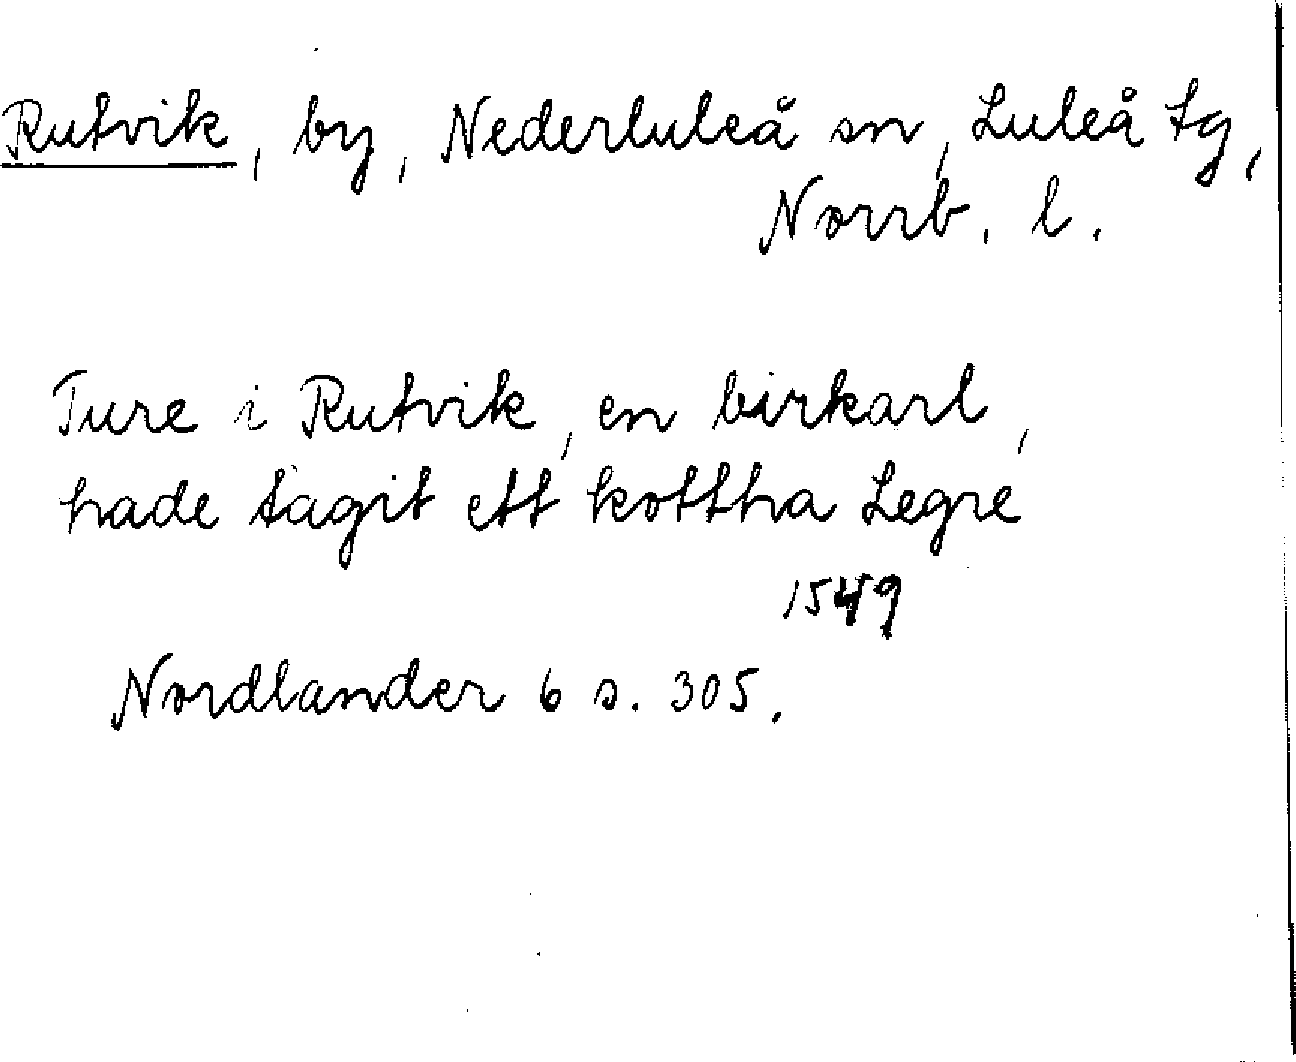 Rutvik, by, Nederluleå sn, Luleå tg,
Norrb. l.
Ture i Rutvik, en birkarl,
hade tagit ett kottha Legre
1549
Nordlander 6 s. 305.